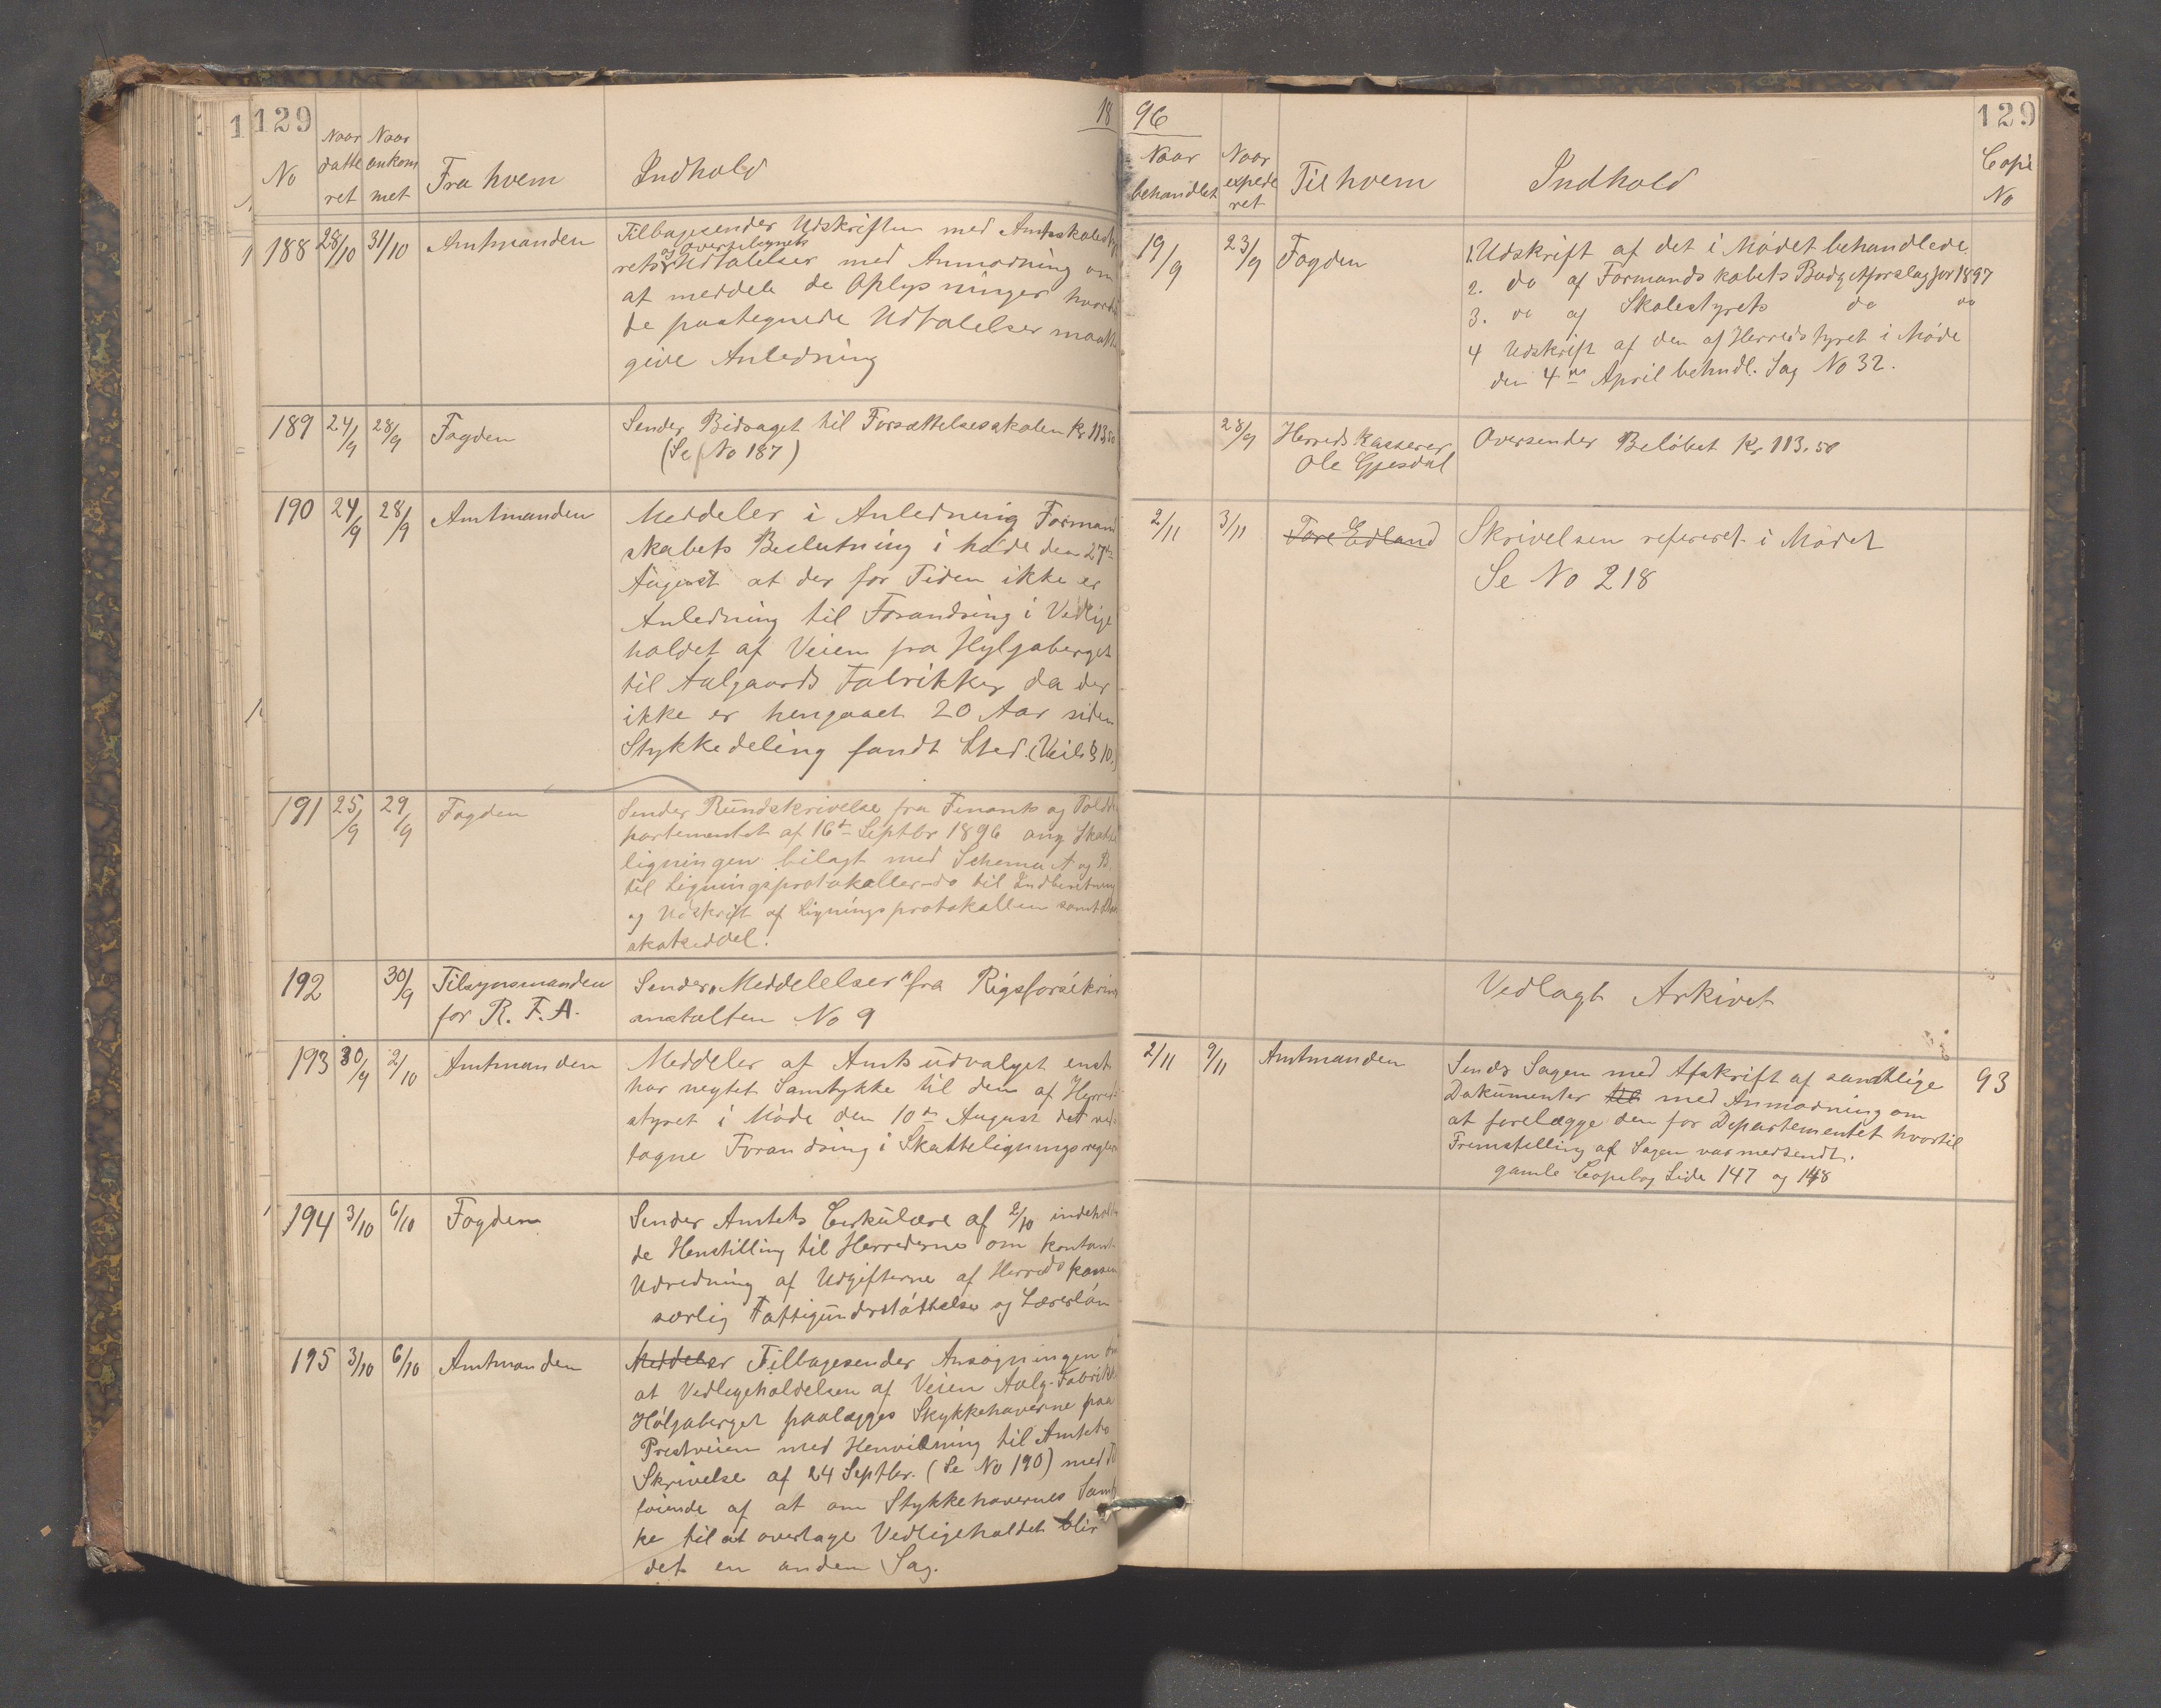 129
18
No
Naar datte ret
Naar ankom met
Fra hvem
Indhold
188 28/10 31/10 Amtmanden
Tilbagesender Udskriften med Amtsskolesty
og Overtilsynets
rets Udtalelser med Anmodning om
at meddele de Oplysninger hvortil
de paategnede Udtalelser maatte
give Anledning
189 24/9 28/9 Fogden
Sender Bidraget til Forsættelsesskolen Kr 113,50
(Se No 187)
190 24/9 28/9 Amtmanden
Meddeler i Anledning Formand
skabets Beslutning i Møde den 27de
August at der for Tiden ikke er
Anledning til Forandring i Vedlige
holdet af Veien fra Hylgaberget
til Aalgaards Fabrikker da der
ikke er hengaaet 20 Aar siden
Stykkedeling fandt Sted. (Veil. § 10.)
191 25/9 29/9 Fogden
Sender Rundskrivelse fra Finants og Toldde
partementet af 16de Septbr 1896 ang Skatte
ligningen bilagt med Schema A og B.
til Ligningsprotokoller - do til Indberetning
og Udskrift af Ligningsprotokollen samt
skatseddel.
192 30/9 Tilsynsmanden
for R. F. A.
Sender "Meddelelser" fra Rigsforsikrings
anstalten No 9
193 30/9 2/10 Amtmanden
Meddeler at Amtsudvalget enst
har negtet Samtykke til den af Herred-
styret i Møde den 10de August det ved-
tagne Forandring i Skatteligningsregler
194 3/10 6/10 Fogden
Sender Amtets Cirkulære af 2/10 indehold
de Henstilling til Herrederne om kontant
Udredning af Udgifterne af Herredskassen
særlig Fattigunderstøttelse og Lærerløn
195 3/10 6/10 Amtmanden
Meddeler Tilbagesender Ansøgningen om
at Vedligeholdelsen af Veien Aalg. Fabrikk
Hølgaberget paalægges Stykkehaverne paa
Prestveien med Henvisning til Amtets
Skrivelse af 24 Septbr. (Se No 190) med Til
føiende af at om Stykkehavernes Samtyk
ke til at overtage Vedligeholdet blir
det en anden Sag.
96
129
Naar behandlet
Naar expede ret
Til hvem
Indhold
Copi No
19/9 23/9 Fogden
1. Udskrift af det i Mødet behandlede.
2. do af Formandskabets Budgetforslag for 1897
3. do af Skolestyrets do do
4 Udskrift af den af Herredstyret i Møde
den 4de April behndl. Sag No 32.
28/9 Herredskasserer
Ole Gjesdal
Oversender Beløbet Kr 113.50
2/11 3/11 Tore Edland
Skrivelsen refereret i Mødet
Se No 218
Vedlagt Arkivet
2/11 9/11 Amtmanden
Sendr Sagen med Afskrift af samtlige
Dokumenter til med Anmodning om
at forelægge den for Departementet hvortil
Fremstilling af Sagen var medsendt.
gamle Copibog Side 147 og 148
93